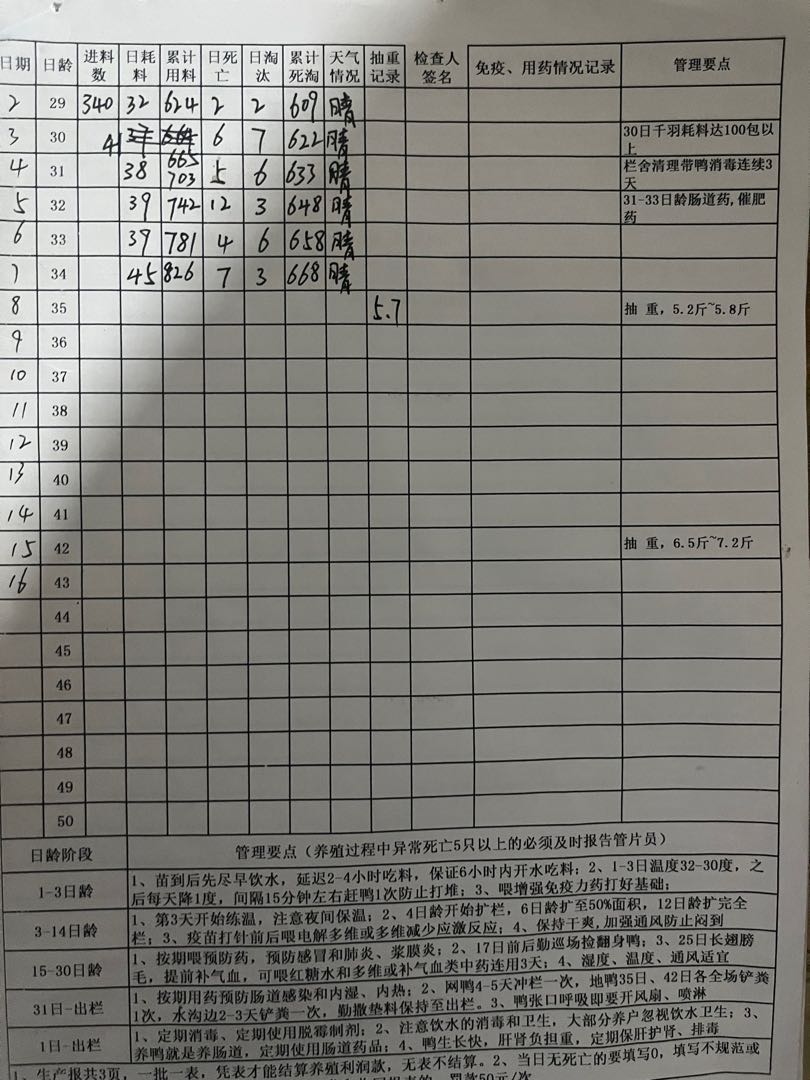 日期 日龄 进料数 日耗料 累计用料 日死亡 日淘汰 累计死淘 天气情况 抽重记录 检查人签名 免疫、用药情况记录 管理要点
2 29 340 32 624 2 2 609 晴
3 30 41 6 7 622 晴 30日千羽耗料达100包以上
665
4 31 38 703 5 6 633 晴 栏舍清理带鸭消毒连续3天
5 32 39 742 12 3 648 晴 31-33日龄肠道药,催肥药
6 33 39 781 4 6 658 晴
7 34 45 826 7 3 668 晴
8 35 5.7 抽 重，5.2斤~5.8斤
9 36
10 37
11 38
12 39
13 40
14 41
15 42 抽 重，6.5斤~7.2斤
16 43
44
45
46
47
48
49
50
日龄阶段 管理要点（养殖过程中异常死亡5只以上的必须及时报告管片员）
1-3日龄 1、苗到后先尽早饮水，延迟2-4小时吃料，保证6小时内开水吃料；2、1-3日温度32-30度，之
后每天降1度，间隔15分钟左右赶鸭1次防止打堆；3、喂增强免疫力药打好基础；
3-14日龄 1、第3天开始练温，注意夜间保温；2、4日龄开始扩栏，6日龄扩至50%面积，12日龄扩完全
栏；3、疫苗打针前后喂电解多维或多维减少应激反应；4、保持干爽,加强通风防止闷到
15-30日龄 1、按期喂预防药，预防感冒和肺炎、浆膜炎；2、17日前后勤巡场捡翻身鸭；3、25日长翅膀
毛，提前补气血，可喂红糖水和多维或补气血类中药连用3天；4、湿度、温度、通风适宜
31日-出栏 1、按期用药预防肠道感染和内湿、内热；2、网鸭4-5天冲栏一次，地鸭35日、42日各全场铲粪
1次，水沟边2-3天铲粪一次，勤撒垫料保持至出栏。3、鸭张口呼吸即要开风扇、喷淋
1日-出栏 1、定期消毒、定期使用脱霉制剂；2、注意饮水的消毒和卫生，大部分养户忽视饮水卫生；3、
养鸭就是养肠道，定期使用肠道药品；4、鸭生长快，肝肾负担重，定期保肝护肾、排毒
1、生产报共3页，一批一表，凭表才能结算养殖利润款，无表不结算。2、当日无死亡的要填写0，填写不规范或
罚款50元/次